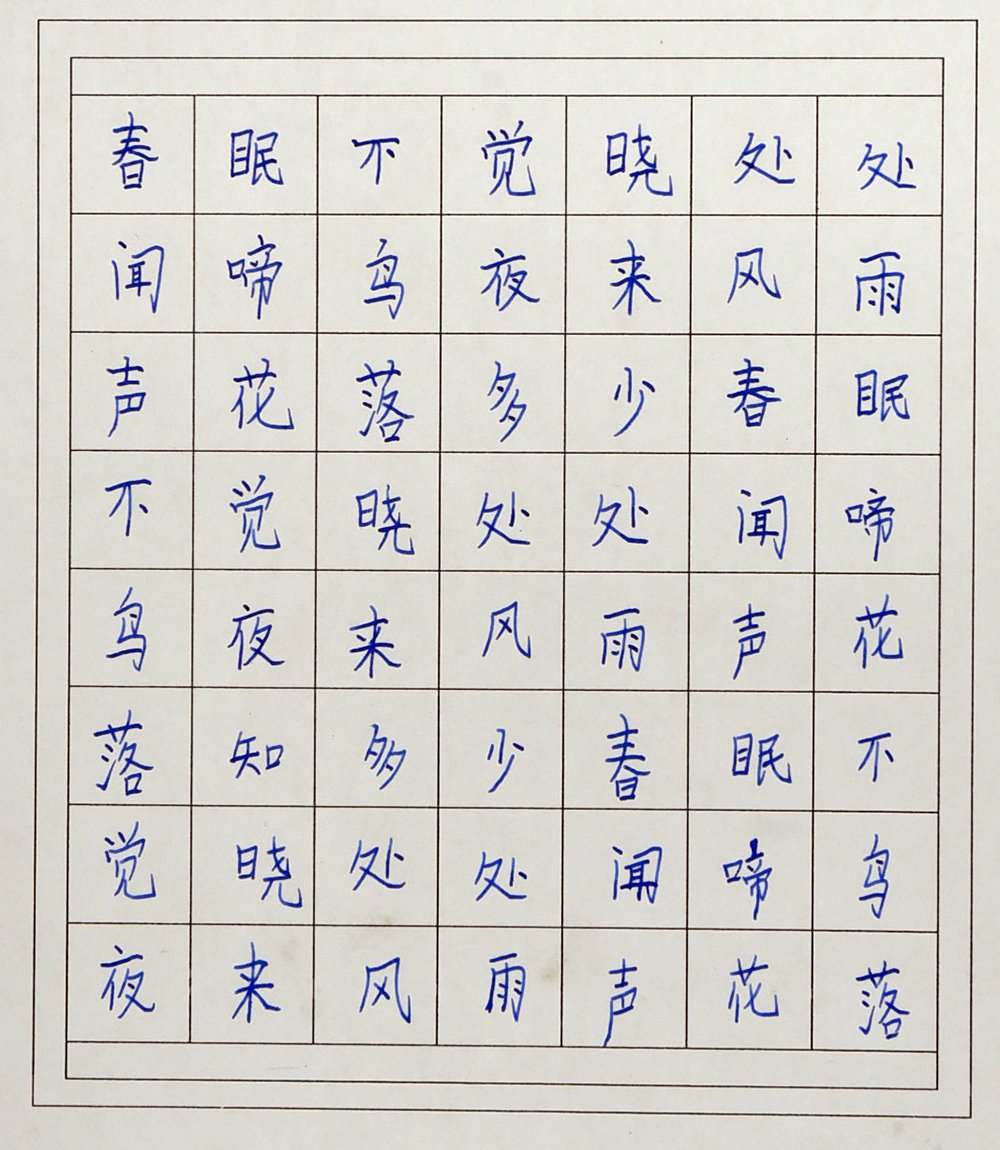 春眠不觉晓处处
闻啼鸟夜来风雨
声花落多少春眠
不觉晓处处闻啼
鸟夜来风雨声花
落知多少春眠不
觉晓处处闻啼鸟
夜来风雨声花落